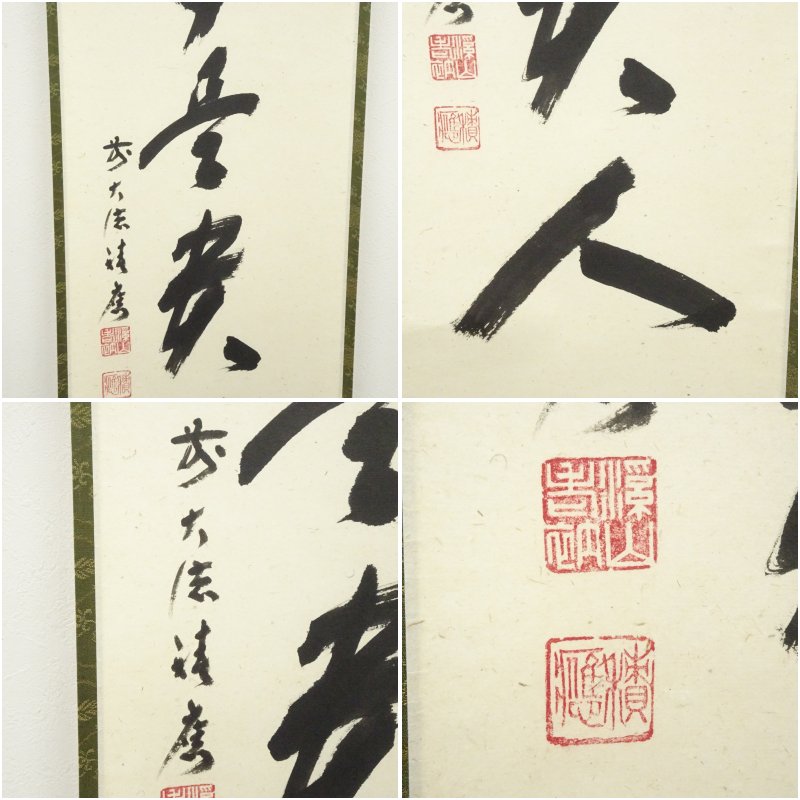 是貴
前大徳積應
人
前大徳積應
積應